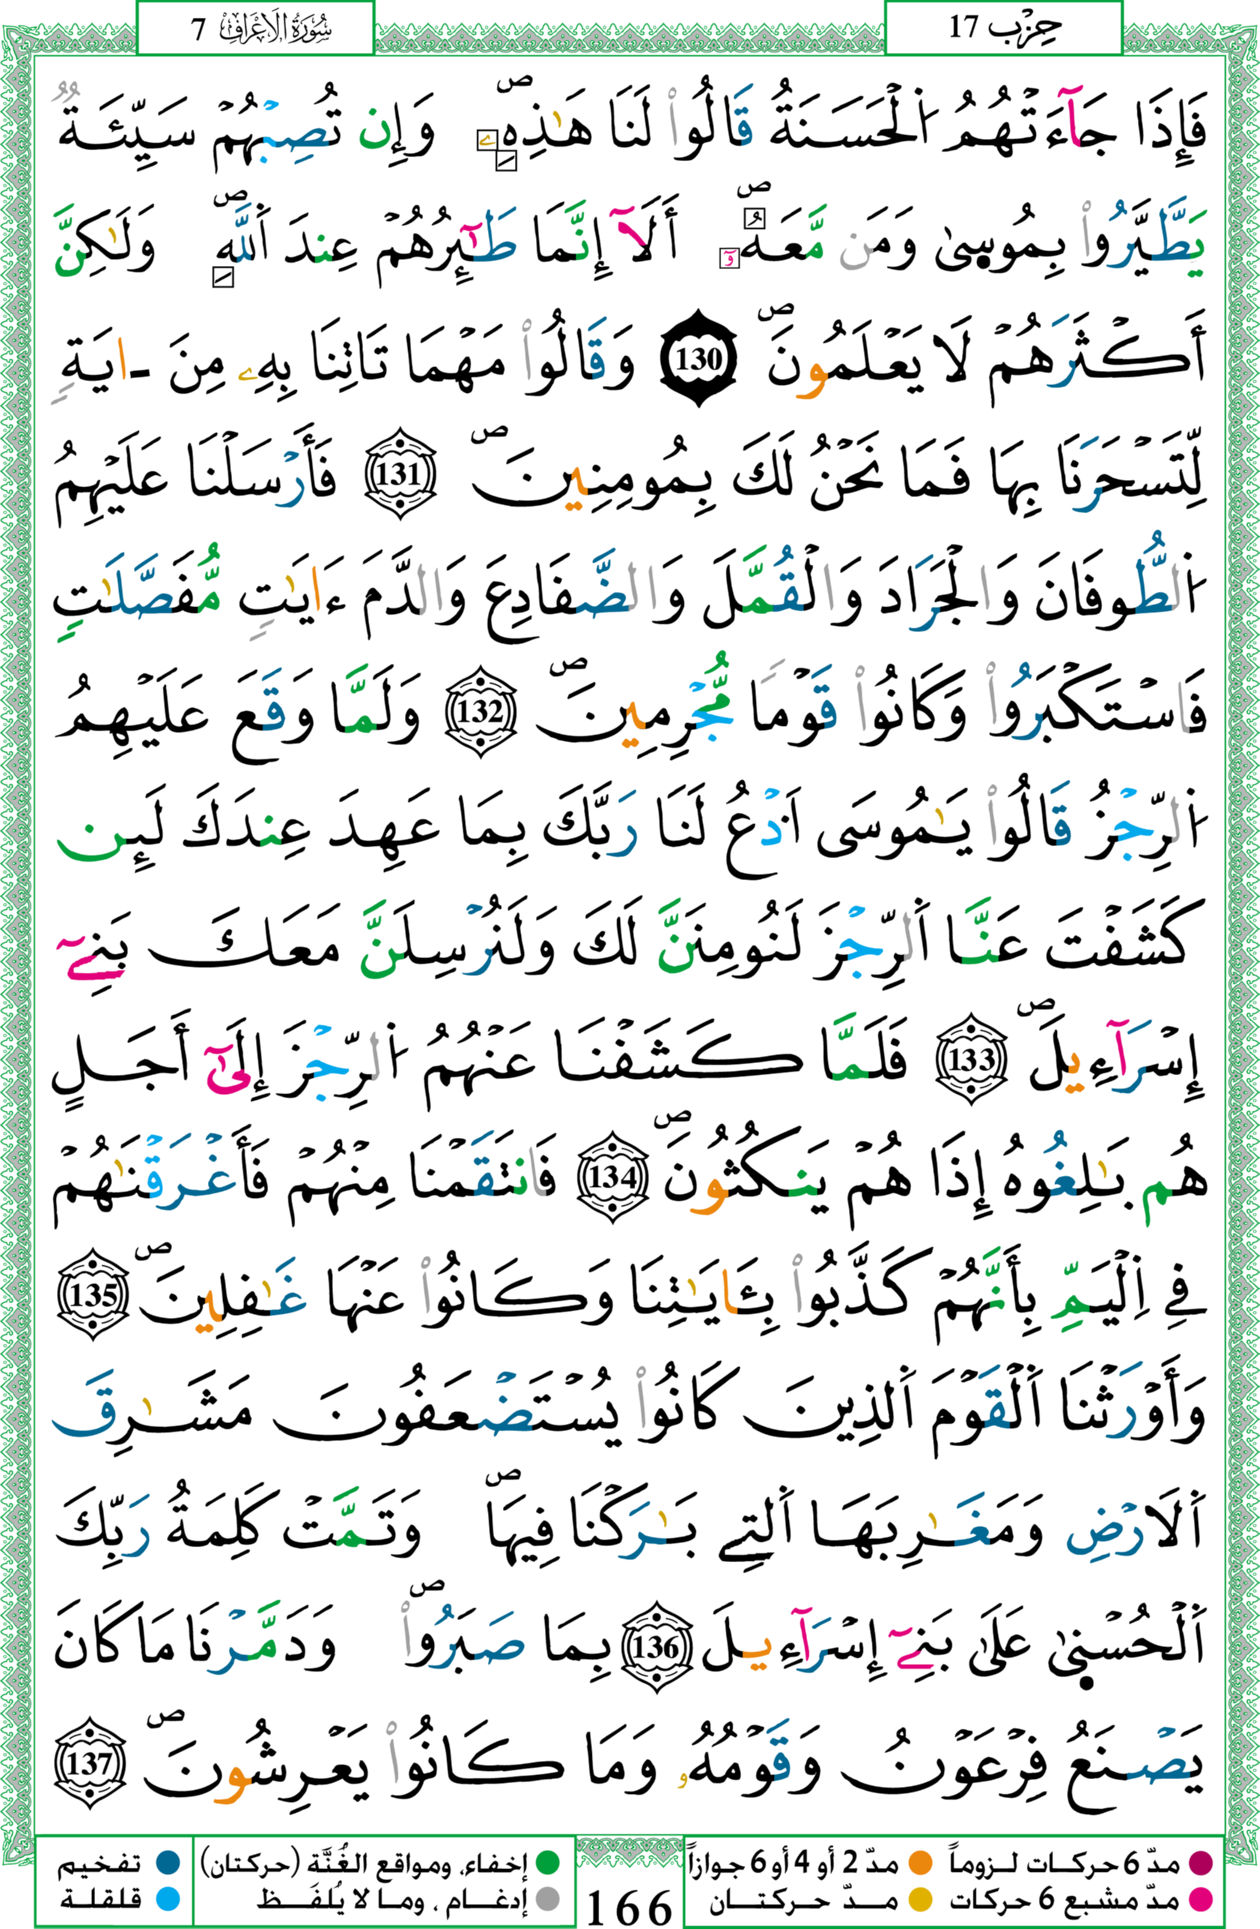 حِزْب 17
سُورَةُ الَاعْرَافِ 7
فَإِذَا جَآءَتْهُمُ اُ۬لْحَسَنَةُ قَالُواْ لَنَا هَٰذِهِۦۖ وَإِن تُصِبْهُمْ سَيِّئَةٞ
يَطَّيَّرُواْ بِمُوس۪ىٰ وَمَن مَّعَهُۥٓۖ أَلَآ إِنَّمَا طَٰٓئِرُهُمْ عِندَ اَ۬للَّهِۖ وَلَٰكِنَّ
أَكْثَرَهُمْ لَا يَعْلَمُونَۖ 130 وَقَالُواْ مَهْمَا تَاتِنَا بِهِۦ مِنَ اٰيَةٖ
لِّتَسْحَرَنَا بِهَا فَمَا نَحْنُ لَكَ بِمُومِنِينَۖ 131 فَأَرْسَلْنَا عَلَيْهِمُ
اُ۬لطُّوفَانَ وَالْجَرَادَ وَالْقُمَّلَ وَالضَّفَادِعَ وَالدَّمَ ءَايَٰتٖ مُّفَصَّلَٰتٖ
فَاسْتَكْبَرُواْ وَكَانُواْ قَوْماٗ مُّجْرِمِينَۖ 132 وَلَمَّا وَقَعَ عَلَيْهِمُ
اُ۬لرِّجْزُ قَالُواْ يَٰمُوسَى اَ۟دْعُ لَنَا رَبَّكَ بِمَا عَهِدَ عِندَكَ لَئِن
كَشَفْتَ عَنَّا اَ۬لرِّجْزَ لَنُومِنَنَّ لَكَ وَلَنُرْسِلَنَّ مَعَكَ بَنِےٓ
إِسْرَآءِيلَۖ 133 فَلَمَّا كَشَفْنَا عَنْهُمُ اُ۬لرِّجْزَ إِلَىٰٓ أَجَلٍ
هُم بَٰلِغُوهُ إِذَا هُمْ يَنكُثُونَۖ 134 فَانتَقَمْنَا مِنْهُمْ فَأَغْرَقْنَٰهُمْ
فِے اِ۬لْيَمِّ بِأَنَّهُمْ كَذَّبُواْ بِـَٔايَٰتِنَا وَكَانُواْ عَنْهَا غَٰفِلِينَۖ 135
وَأَوْرَثْنَا اَ۬لْقَوْمَ اَ۬لذِينَ كَانُواْ يُسْتَضْعَفُونَ مَشَٰرِقَ
اَ۬لَارْضِ وَمَغَٰرِبَهَا اَ۬لتِے بَٰرَكْنَا فِيهَاۖ وَتَمَّتْ كَلِمَةُ رَبِّكَ
اَ۬لْحُسْن۪ىٰ عَلَىٰ بَنِےٓ إِسْرَآءِيلَ 136 بِمَا صَبَرُواْۖ وَدَمَّرْنَا مَا كَانَ
يَصْنَعُ فِرْعَوْنُ وَقَوْمُهُۥ وَمَا كَانُواْ يَعْرِشُونَۖ 137
مدّ 6 حركات لـزوماً مدّ 2 أو 4 أو 6 جوازاً
مدّ مشبع 6 حركات مـدّ حركتـان
166
إخفاء، ومواقع الغُنَّة (حركتان) تفخيم
إدغـام ، ومـا لا يُلفَـظ قلقلة